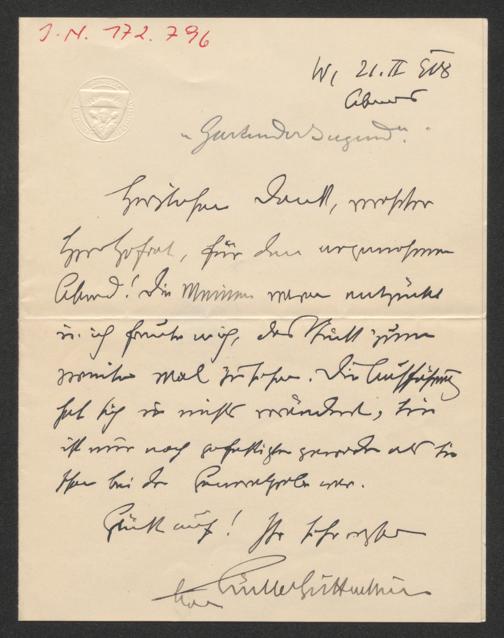 J. N. 172.796
W, 21. II 908
Abends
„Garten der Jugend".
Herzlichen Dank, verehrter
Herr Hofrat, für den angenehmen
Abend! Die Meinen waren entzückt
u. ich freute mich, das Stück zum
zweiten Mal zu sehen. Die Aufführung
hat sich in nichts verändert, sie
ist nur noch gefestigter geworden als sie
schon bei der Generalprobe war.
Glück auf! Ihr sehr ergebener